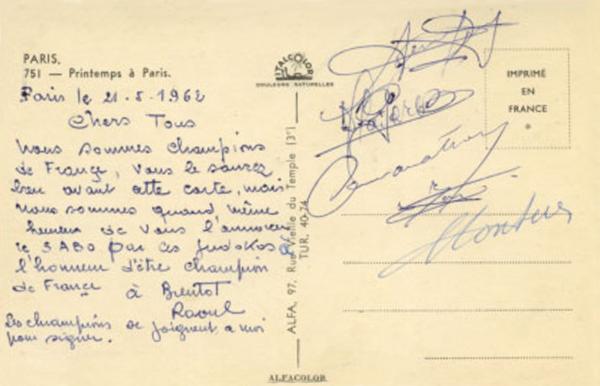 PARIS,
751 — Printemps à Paris.
ITALCOLOR
COULEURS NATURELLES
IMPRIMÉ
EN
FRANCE
Paris le 21-5-1962
Chers Tous
Nous sommes champions
de France, vous le saurez
bien avant cette carte, mais
nous sommes quand même
heureux de vous l'annoncer
le SABO par ces judokas à
l'honneur d'être champion
de France
à Bientot
Raoul
Les champions se joignent a moi
pour signer.
ALFA, 97, Rue Vieille du Temple (3e)
TUR. 40-74
ALFACOLOR